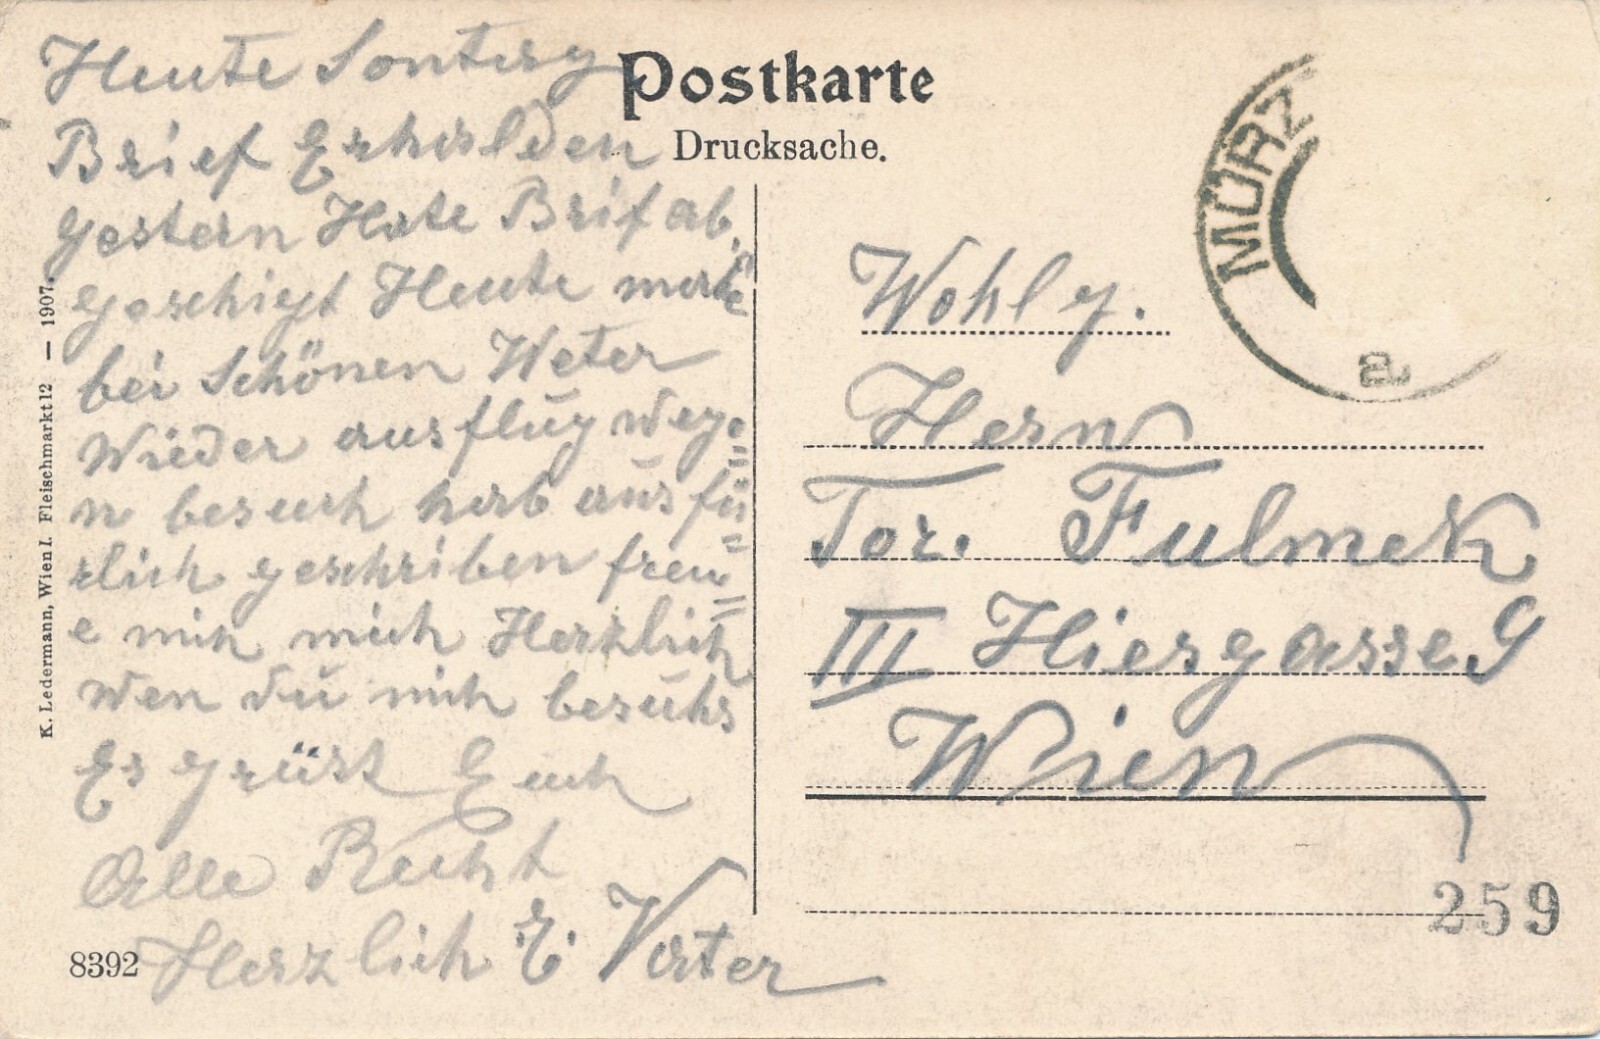 Postkarte
Drucksache.
Heute Sontag
Brief Erhalden
Gestern Hate Brif ab
geschigt Heute
bei Schönen Weter
Wieder ausflug wege=
n besuch hab ausfü=
rlich geschriben freu=
e mich Herzlich
wen du mich besuhs
Es grüst Euch
Alle Recht
Herzlich E. Vater
8392
K. Ledermann, Wien I. Fleischmarkt 12 — 1907.
Wohlg.
Hern
Fulmek
III Hiesgasse 9
Wien
259
MÜRZ
a